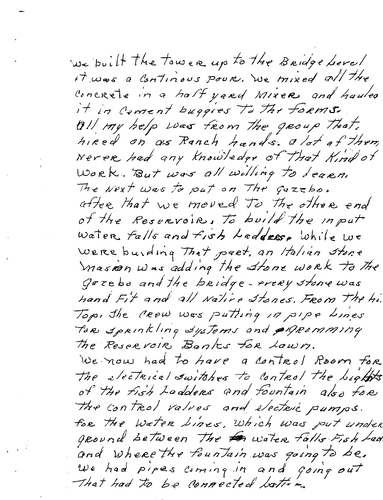 We built the tower up to the Bridge level
it was a Continous pour. We mixed all the
Concrete in a half yard Mixer and hauled
it in Cement buggies to the forms.
All my help was from the group that,
hired on as Ranch hands. a lot of them,
Never had any Knowledge of That Kind of
Work. But was all willing to learn.
The Next was to put on The Gazebo.
after that we moved To the other end
of the Reservoir, To build the input
water falls and fish Ladders. While we
were building That part, an Italian Stone
Masion was adding the Stone work to the
gazebo and the bridge - every stone was
hand Fit and all Native Stones. From the hi.
Top. The Crew was putting in pipe Lines
for sprinkling Systems and gromming
the Reservoir Banks for Lawn.
We now had to have a Control Room for
the electrical switches to Control the Lights
of the fish Ladders and fountain also for
the Control valves and electric pumps.
for the Water Lines. which was put under
ground between the water falls Fish Lad
and where the fountain was going to be.
We had pipes coming in and going out
That had to be Connected